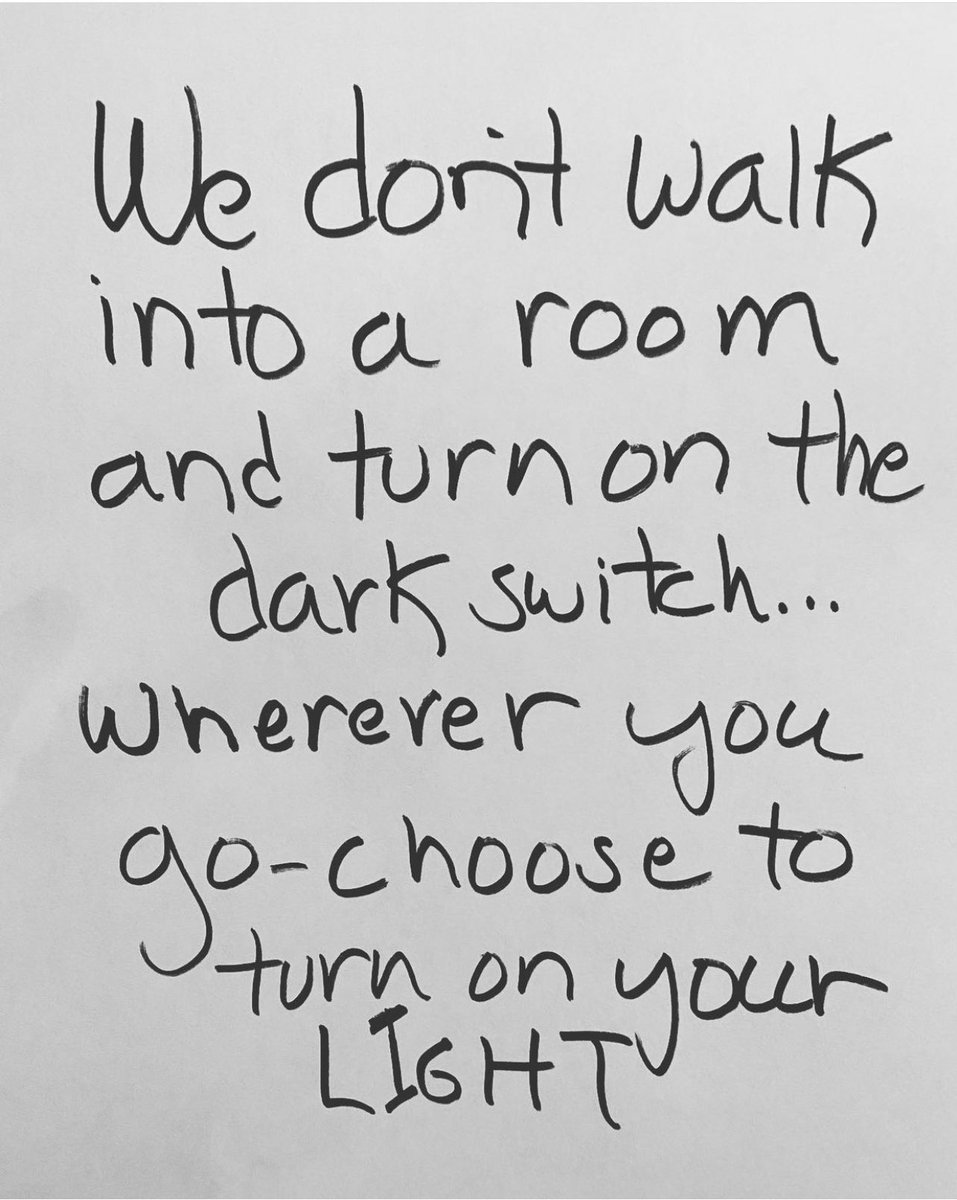 We don't walk
into a room
and turn on the
dark switch...
wherever you
go-choose to
turn on your
LIGHT